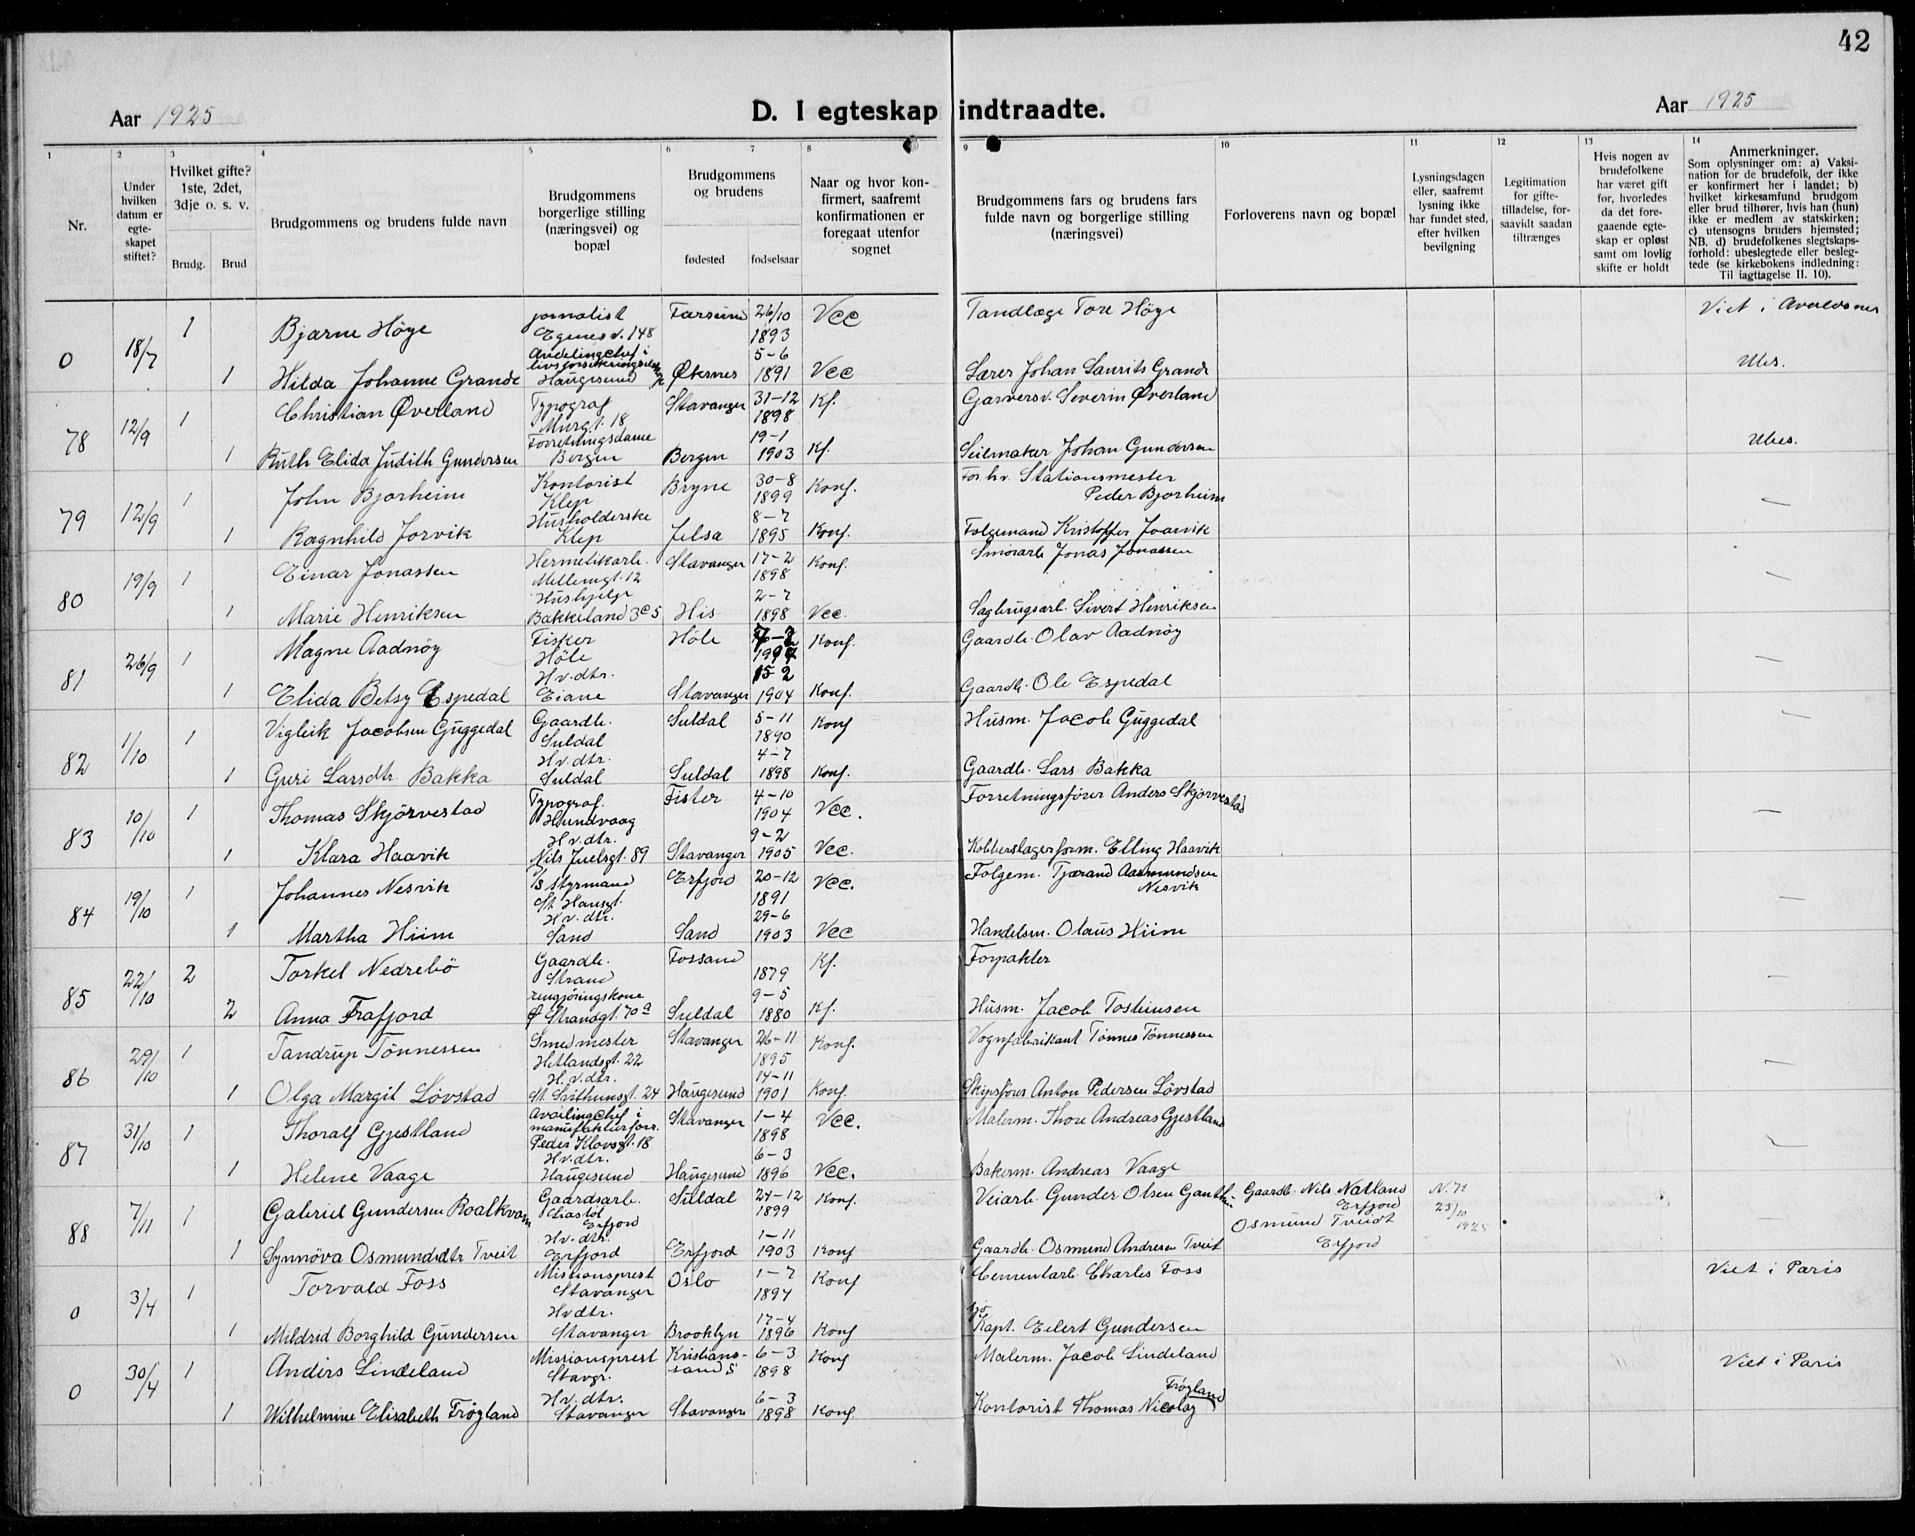 42
Aar 1925
D. I egteskap indtraadte.
Aar 1925
1 2 3 4 5 6 7 8 9 10 11 12 13 14
Nr.
Under hvilken datum er egte- skapet stiftet?
Hvilket gifte? 1ste, 2det, 3dje o. s. v.
Brudg. Brud
Brudgommens og brudens fulde navn
Brudgommens borgerlige stilling (næringsvei) og bopæl
Brudgommens og brudens
fødested fødselsaar
Naar og hvor kon- firmert, saafremt konfirmationen er foregaat utenfor sognet
Brudgommens fars og brudens fars fulde navn og borgerlige stilling (næringsvei)
Forloverens navn og bopæl
Lysningsdagen eller, saafremt lysning ikke har fundet sted, efter hvilken bevilgning
Legitimation for gifte- tilladelse, for- saavidt saadan tiltrænges
Hvis nogen av brudefolkene har været gift før, hvorledes da det fore- gaaende egte- skap er opløst samt om lovlig skifte er holdt
Anmerkninger.
Som oplysninger om: a) Vaksi- nation for de brudefolk, der ikke er konfirmert her i landet; b) hvilket kirkesamfund brudgom eller brud tilhører, hvis han (hun) ikke er medlem av statskirken; c) utensogns bruders hjemsted; NB. d) brudefolkenes slegtskaps- forhold: ubeslegtede eller besleg- tede (se kirkebokens indledning: Til iagttagelse II. 10).
0 18/7 1 Bjarne Høye jornalist Egenes v. 148 Farsund 26/10 1893 Vcc Tandlæge Tore Høye Viet i Avaldsnes
1 Hilda Johanne Grande Avdelingchef i Haugesund Øksnes 5-6 1891 Vcc Lærer Johan Laurits Grande Ubes.
78 12/9 1 Christian Øverland Typograf Murgt. 18 Stavanger 31-12 1898 Kf. Garversv. Severin Øverland
1 Ruth Elida Judith Gundersen Forretningsdame Bergen Bergen 19-1 1903 Kf. Seilmaker Johan Gundersen Ubes.
79 12/9 1 John Bjorheim Kontorist Klep Bryne 30-8 1899 Konf. Forhv. Stationsmester Peder Bjorheim —
1 Ragnhild Jorvik Husholderske Klep Jelsa 8-7 1895 Konf. Følgemand Kristoffer Joarvik
80 19/9 1 Einar Jonassen Hermetikarb. Mellemgt. 12 Stavanger 17-2 1898 Konf. Smørarb. Jonas Jonassen —
1 Marie Henriksen Hushjelp Bakkeland 3c5 His 2-7 1898 Vcc. Sagbrugsarb. Sivert Henriksen
81 26/9 1 Magne Aadnøy Fisker Høle Høle Konf. Gaardb. Olav Aadnøy —
1 Elida Betsy Espedal Hv.dtr. Eiane Stavanger 15 2 1904 Konf. Gaardb. Ole Espedal
82 1/10 1 Vigleik Jacobsen Guggedal Gaardb. Suldal Suldal 5-11 1890 Konf Husm. Jacob Guggedal —
1 Guri Larsdtr. Bakka Hv.dtr. Suldal Suldal 4-7 1898 Konf. Gaardb. Lars Bakka
83 10/10 1 Thomas Skjørvestad Typograf. Hundvaag Fister 4-10 1904 Vcc. Forretningsfører Anders Skjørvestad —
1 Klara Haavik Hv.dtr. Nils Juelsgt. 89 Stavanger 9-2 1905 Vcc. Kobberslagerform. Elling Haavik
84 19/10 1 Johannes Nesvik Styrmand St. Hansgt. Erfjord 20-12 1891 Vcc. Følgem. Tjærand Aasmundsen Nesvik —
1 Martha Hiim Hv.dtr. Sand Sand 29-6 1903 Vcc Handelsm. Olaus Hiim
85 22/10 2 Torkel Nedrebö Gaardb. Strand Fossand 1879 Kf. Forpakter —
2 Anna Frafjord rengjøringskone Ø Strandgt. 70a Suldal 9-5 1880 Kf. Husm. Jacob Tosteinsen
86 29/10 1 Tandrup Tønnessen Smedmester Hetlandsgt. 22 Stavanger 26-11 1895 Konf. Vognfabrikant Tønnes Tønnessen —
1 Olga Margit Løvstad H.v.dtr. St. Svithunsgt. 24 Haugesund 14-11 1901 Konf. Skipsfører Anton Pedersen Løvstad
87 31/10 1 Thoralf Gjestland Avdelingchef i manufakturforr. Peder Klovsgt. 18 Stavanger 1-4 1898 Vcc. Malerm. Thore Andreas Gjestland —
1 Helene Vaage Hv.dtr. Haugesund Haugesund 6-3 1896 Vcc. Bakerm. Andreas Vaage
88 7/11 1 Gabriel Gundersen Roalkvam Gaardsarb. Erfjord Suldal 24-12 1899 Konf. Veiarb. Gunder Olsen Gaardb. Nils Natland Erfjord N. 71 23/10 1925 —
1 Synnøva Osmundsdtr Tveit Hv.dtr. Erfjord Erfjord 1-11 1903 Konf Gaardb. Osmund Andresen Tveit Osmund Tveidt Erfjord
0 3/4 1 Torvald Foss Missionsprest Stavanger Oslo 1-7 1894 Konf Cementarb. Charles Foss Viet i Paris
1 Mildrid Borghild Gundersen Hvdtr. Stavanger Brooklyn 17-4 1896 Konf Kapt. Eilert Gundersen
0 30/4 1 Anders Lindeland Missionsprest Stavgr. Kristians- sand S 6-3 1898 Konf Malerm. Jacob Lindeland Viet i Paris
1 Wilhelmine Elisabeth Frøyland Hv.dtr. Stavanger Stavanger 6-3 1898 Konf. Kontorist Thomas Nicolay Frøyland